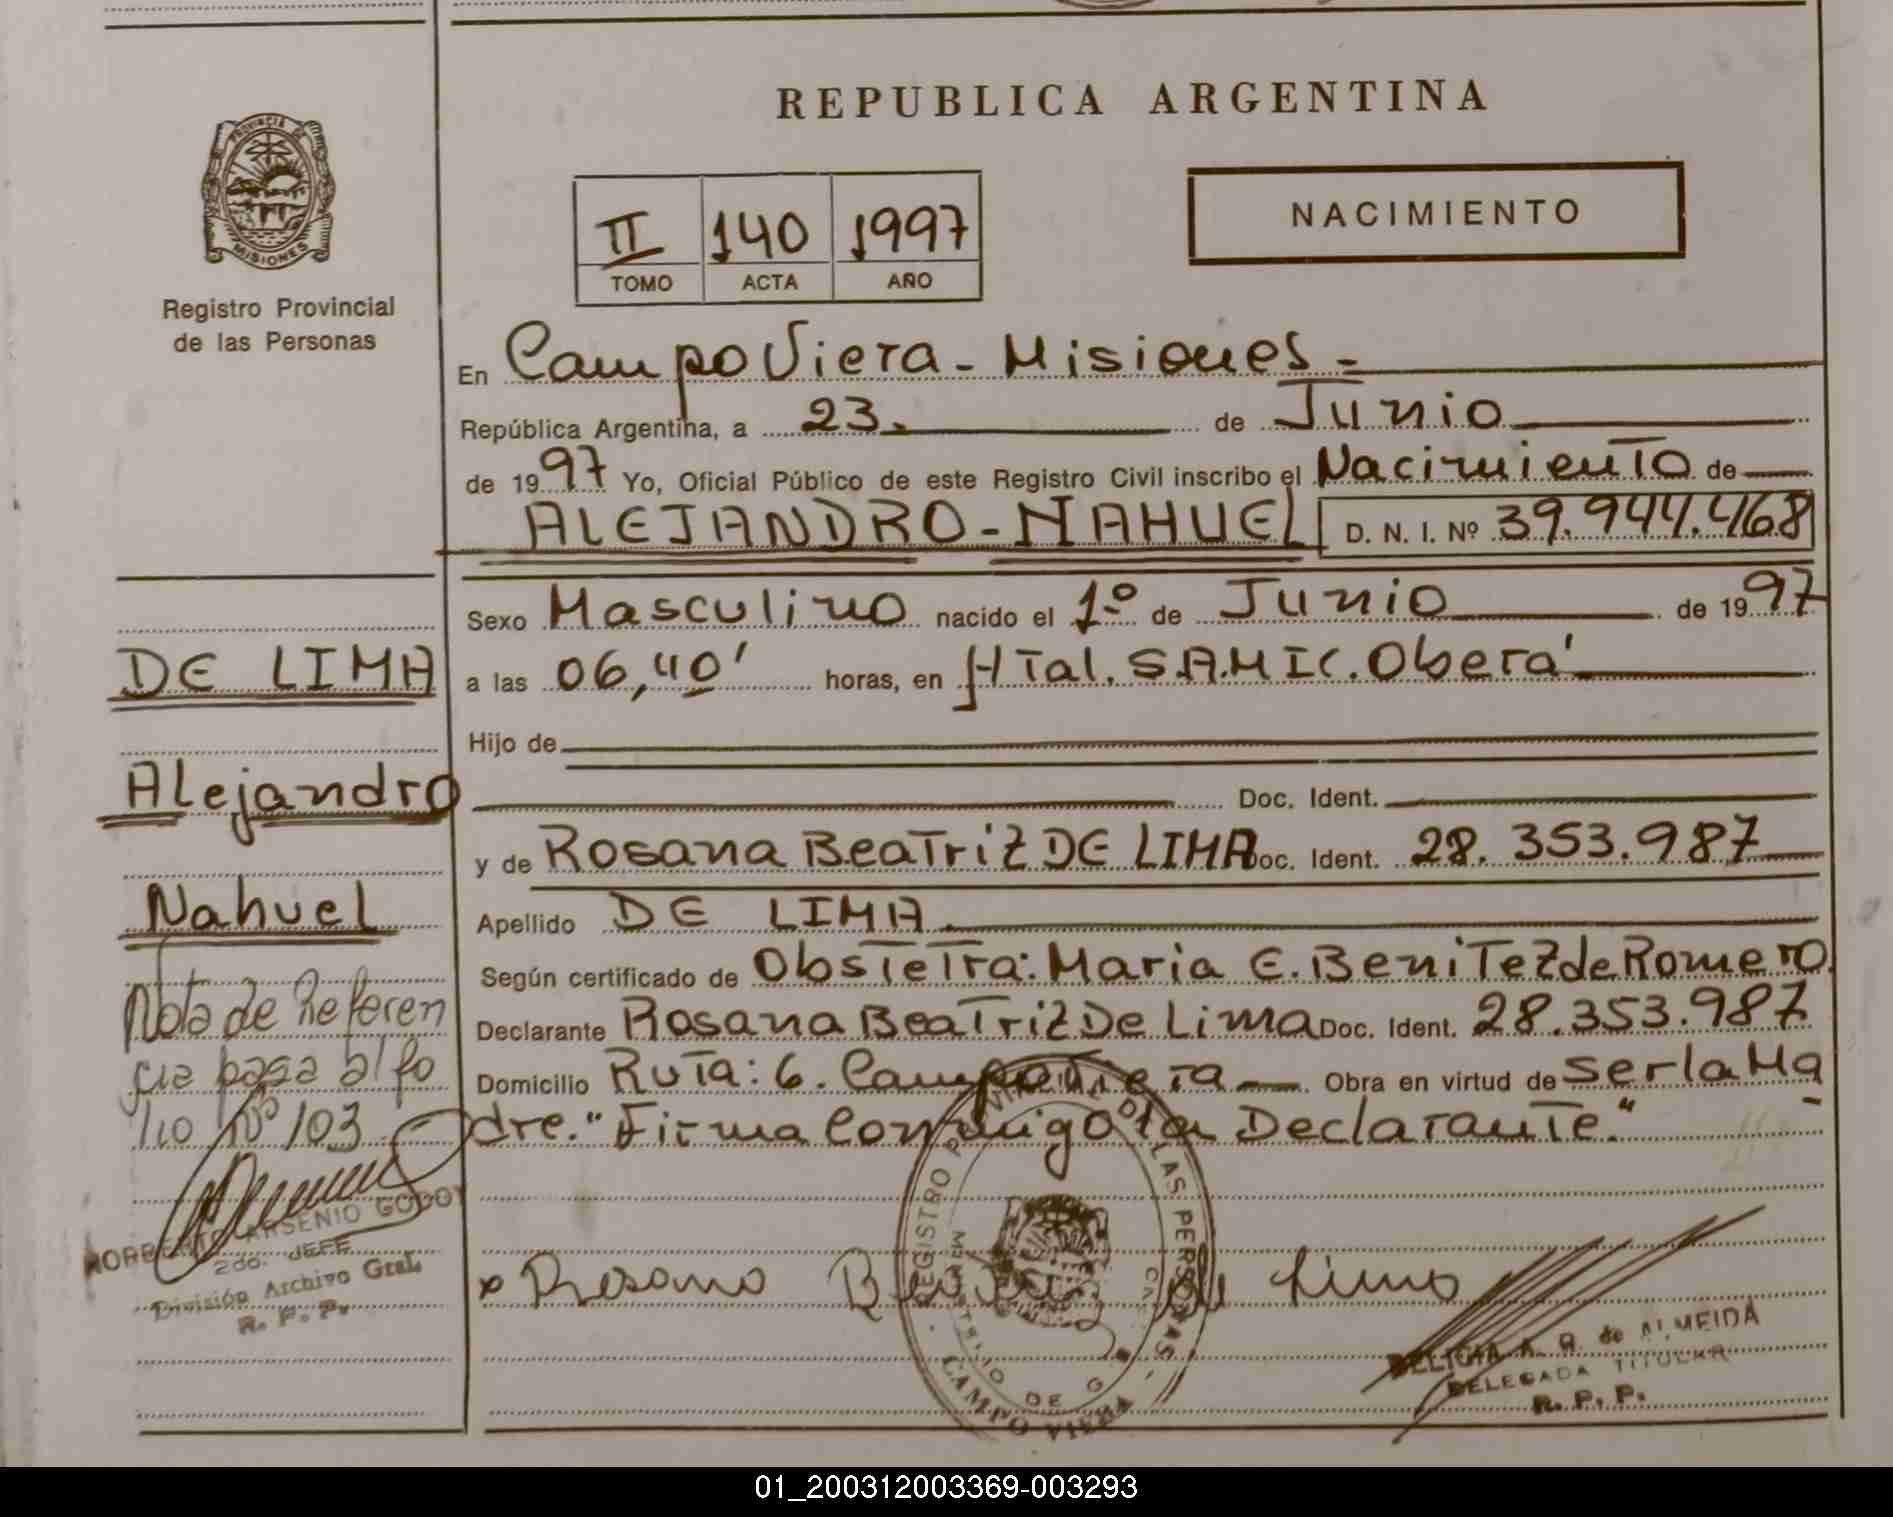 REPUBLICA ARGENTINA
PROVINCIA DE
MISIONES
Registro Provincial
de las Personas
II 140 1997
TOMO ACTA AÑO
NACIMIENTO
En Campo Viera - Misiones -
República Argentina, a 23. de Junio
de 1997 Yo, Oficial Público de este Registro Civil inscribo el Nacimiento de
ALEJANDRO - NAHUEL D. N. I. Nº 39.944.468
Sexo Masculino nacido el 1º de Junio de 1997
a las 06,40' horas, en Htal. S.A.M.I.C. Oberá
Hijo de
Doc. Ident.
y de Rosana Beatriz DE LIMA Doc. Ident. 28.353.987
Apellido DE LIMA.
Según certificado de Obstetra: Maria E. Benitez de Romero.
Declarante Rosana Beatriz De Lima Doc. Ident. 28.353.987
Domicilio Ruta: 6. Campo Viera Obra en virtud de ser la Ma
dre. "Firma Conmigo la Declarante."
x Rosana Beatriz de Lima
DE LIMA
Alejandro
Nahuel
Nota de Referen
cia pasa al fo
lio Nº 103
NORBERTO ARSENIO GODOY
2do. JEFE
División Archivo Gral.
R. P. P.
REGISTRO DE LAS PERSONAS
MINISTERIO DE G
CAMPO VIERA
DELICIA A. R. de ALMEIDA
DELEGADA TITULAR
R. P. P.
01_200312003369-003293